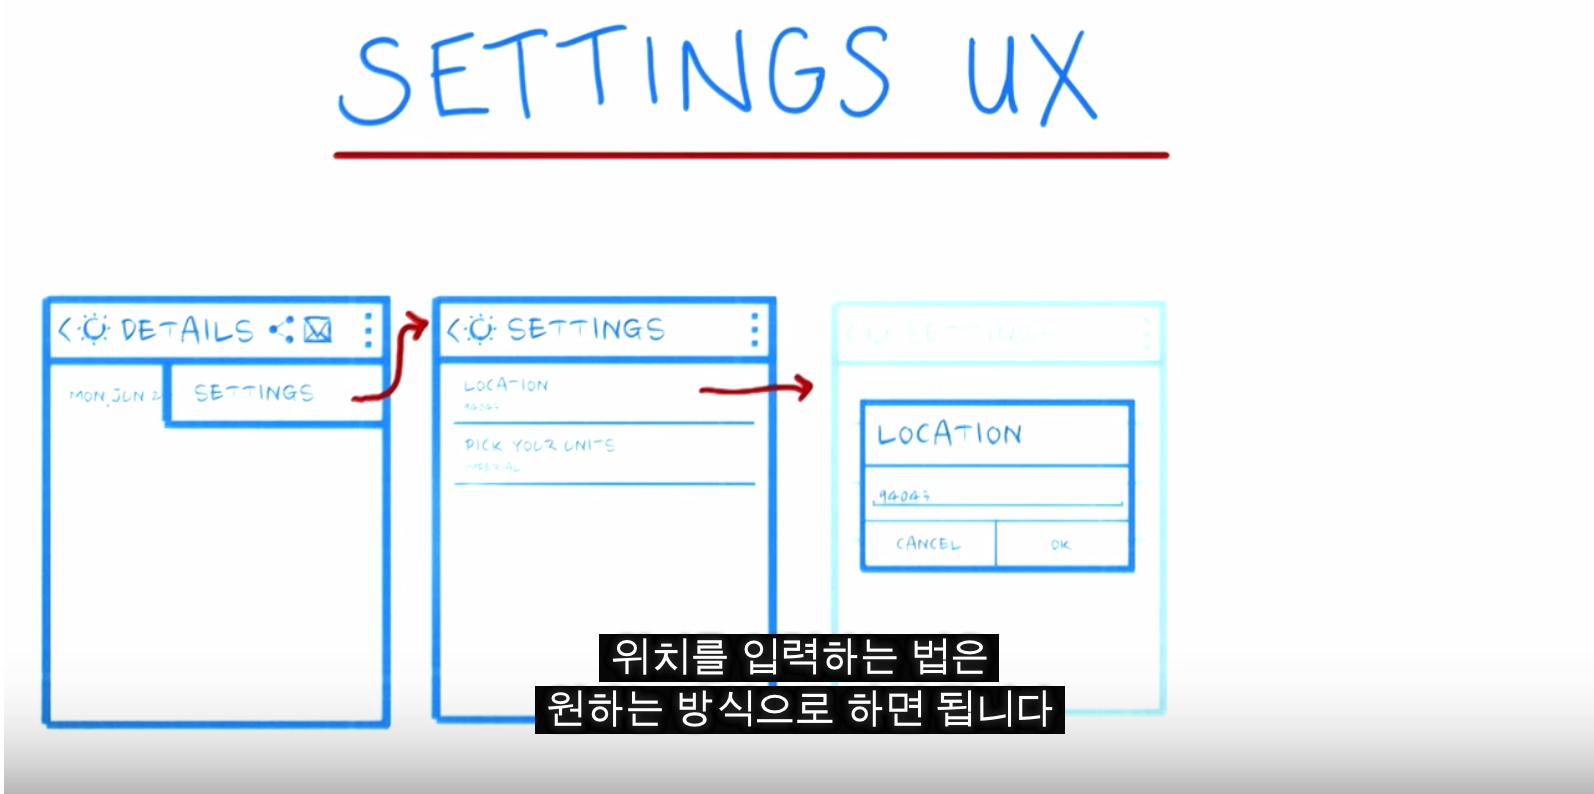 SETTINGS UX
DETAILS
MON, JUN 2
SETTINGS
SETTINGS
LOCATION
94043
PICK YOUR UNITS
IMPERIAL
SETTINGS
LOCATION
94043
CANCEL
OK
위치를 입력하는 법은
원하는 방식으로 하면 됩니다